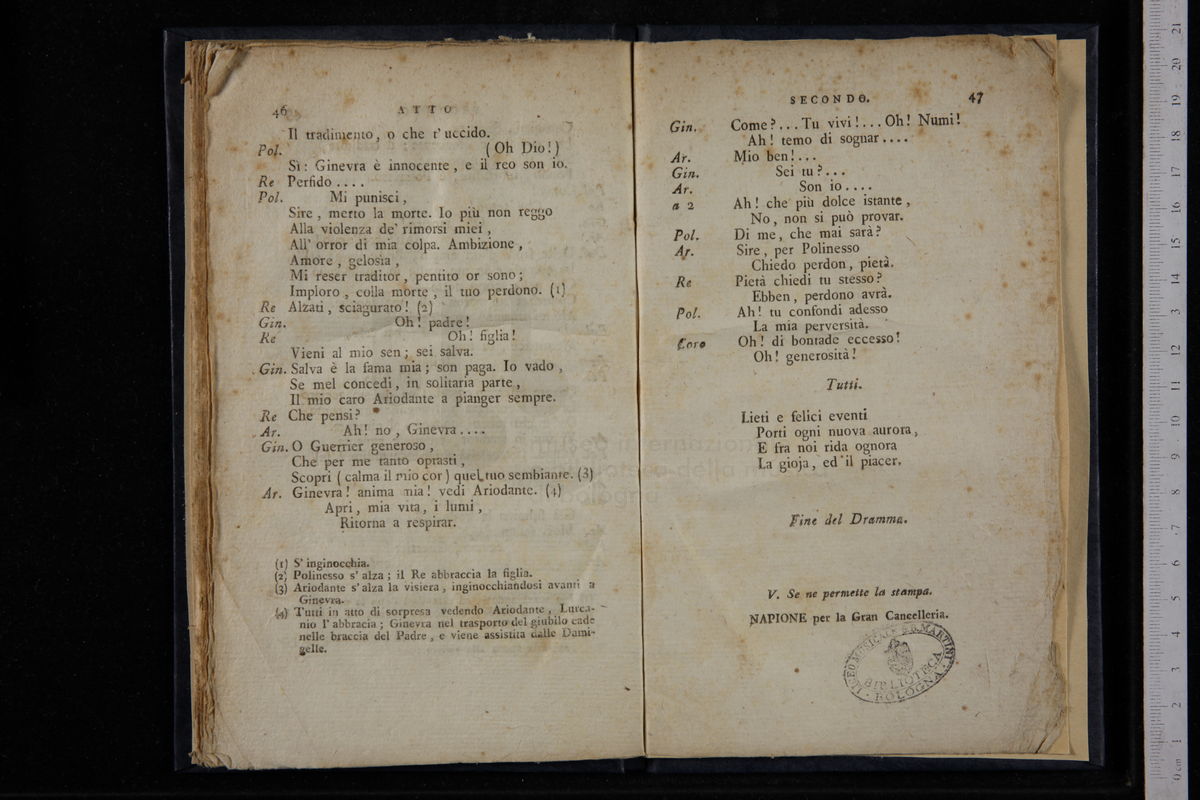 46 ATTO
Il tradimento, o che t'uccido.
Pol. (Oh Dio!)
Sì: Ginevra è innocente, e il reo son io.
Re Perfido....
Pol. Mi punisci,
Sire, merto la morte. Io più non reggo
Alla violenza de' rimorsi miei,
All' orror di mia colpa. Ambizione,
Amore, gelosia,
Mi reser traditor, pentito or sono;
Imploro, colla morte, il tuo perdono. (1)
Re Alzati, sciagurato! (2)
Gin. Oh! padre!
Re Oh! figlia!
Vieni al mio sen; sei salva.
Gin. Salva è la fama mia; son paga. Io vado,
Se mel concedi, in solitaria parte,
Il mio caro Ariodante a pianger sempre.
Re Che pensi?
Ar. Ah! no, Ginevra....
Gin. O Guerrier generoso,
Che per me tanto oprasti,
Scopri (calma il mio cor) quel tuo sembiante. (3)
Ar. Ginevra! anima mia! vedi Ariodante. (4)
Apri, mia vita, i lumi,
Ritorna a respirar.
(1) S' inginocchia.
(2) Polinesso s' alza; il Re abbraccia la figlia.
(3) Ariodante s' alza la visiera, inginocchiandosi avanti a
Ginevra.
(4) Tutti in atto di sorpresa vedendo Ariodante, Lurca-
nio l' abbracia; Ginevra nel trasporto del giubilo cade
nelle braccia del Padre, e viene assistita dalle Dami-
gelle.
SECONDO. 47
Gin. Come?...Tu vivi!...Oh! Numi!
Ah! temo di sognar....
Ar. Mio ben!...
Gin. Sei tu?...
Ar. Son io....
a 2 Ah! che più dolce istante,
No, non si può provar.
Pol. Di me, che mai sarà?
Ar. Sire, per Polinesso
Chiedo perdon, pietà.
Re Pietà chiedi tu stesso?
Ebben, perdono avrà.
Pol. Ah! tu confondi adesso
La mia perversità.
Coro Oh! di bontade eccesso!
Oh! generosità!
Tutti.
Lieti e felici eventi
Porti ogni nuova aurora,
E fra noi rida ognora
La gioja, ed il piacer.
Fine del Dramma.
V. Se ne permette la stampa.
NAPIONE per la Gran Cancelleria.
LICEO MUSICALE G.B. MARTINI
BIBLIOTECA
BOLOGNA